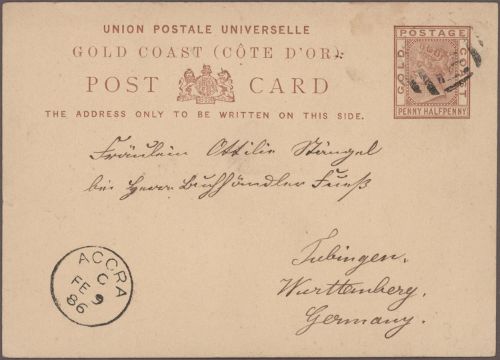 UNION POSTALE UNIVERSELLE
GOLD COAST (CÔTE D'OR)
POST CARD
THE ADDRESS ONLY TO BE WRITTEN ON THIS SIDE.
POSTAGE
GOLD
COAST
PENNY HALFPENNY
Fräulein Ottilie Stängel
bei Herrn Buchhändler Fueß
Tubingen.
Wurttemberg.
Germany.
ACCRA
C
9
FE
86